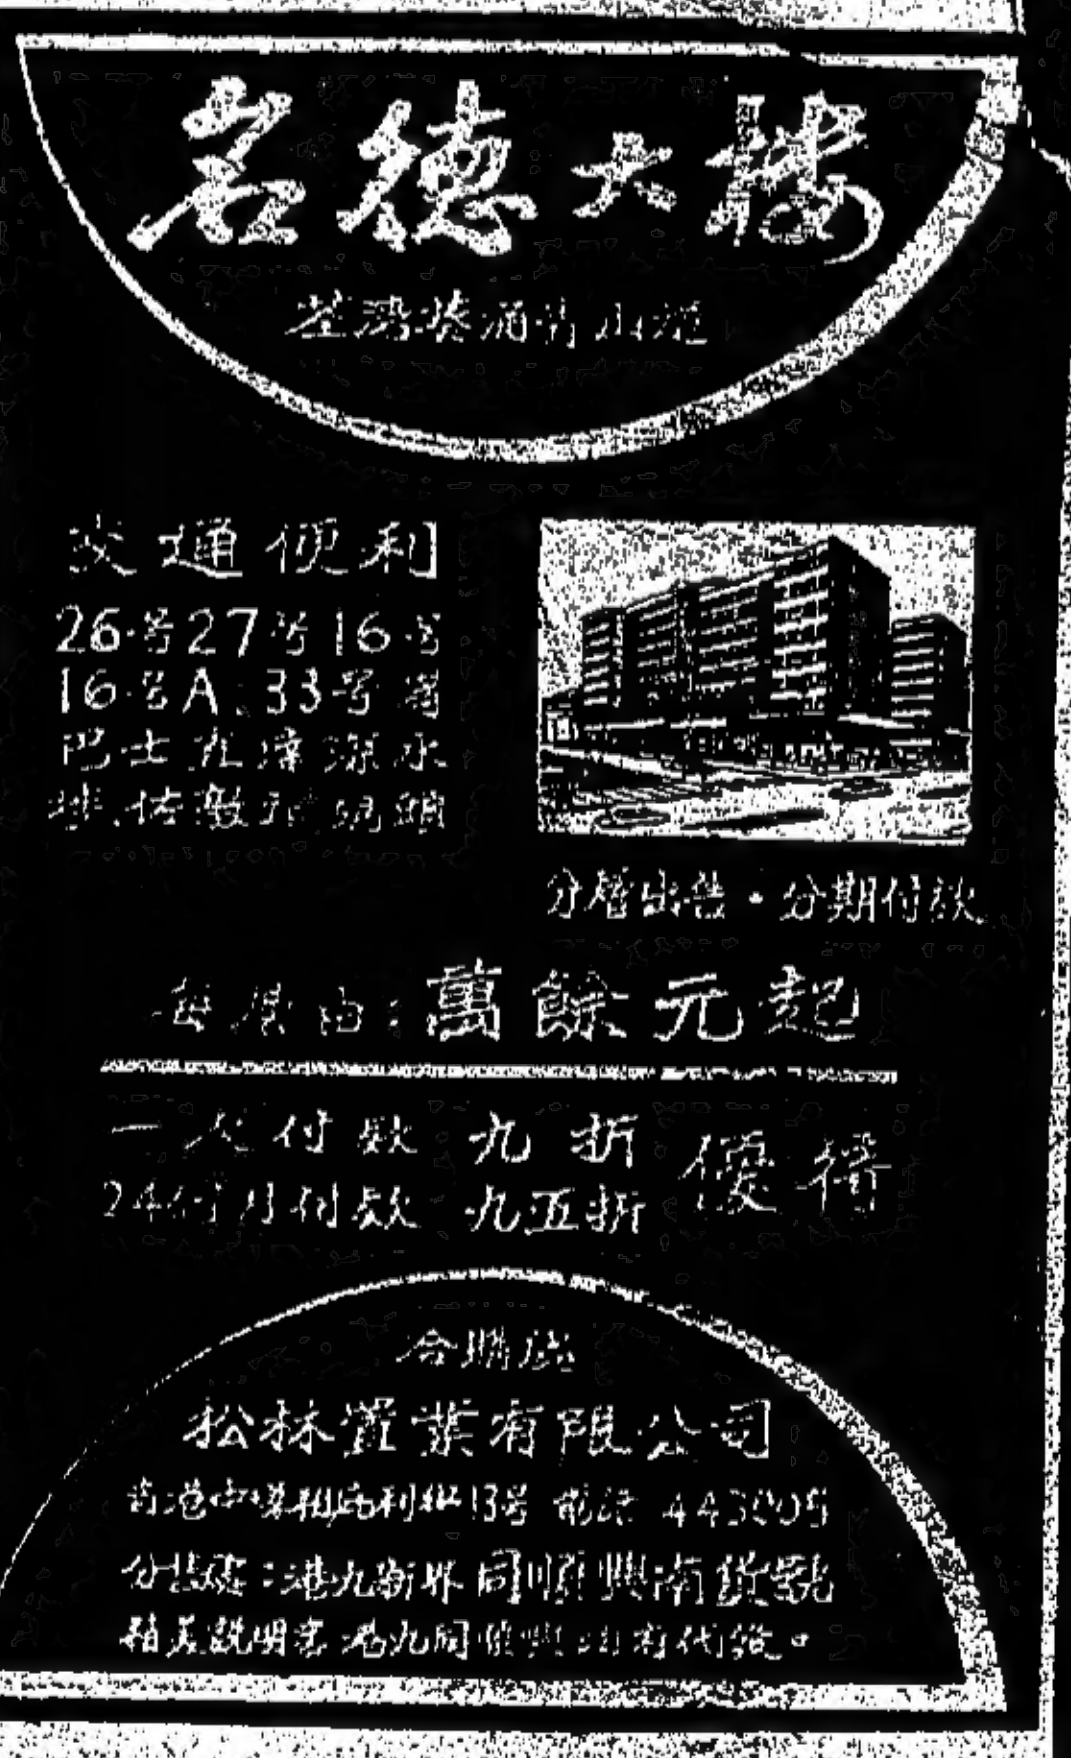 德大樓
荃灣葵涌青山道
交通便利
26号27号16号
16号A、33号等
巴士九龍深水
埗、佐敦碼頭
分層出售・分期付款
每層由：萬餘元起
一次付款 九折
24個月付款 九五折
優待
松林置業有限公司
香港中環 利街13号 電話 443005
分售處：港九新界同順興南貨號
精美說明書港九同順興均有代發。